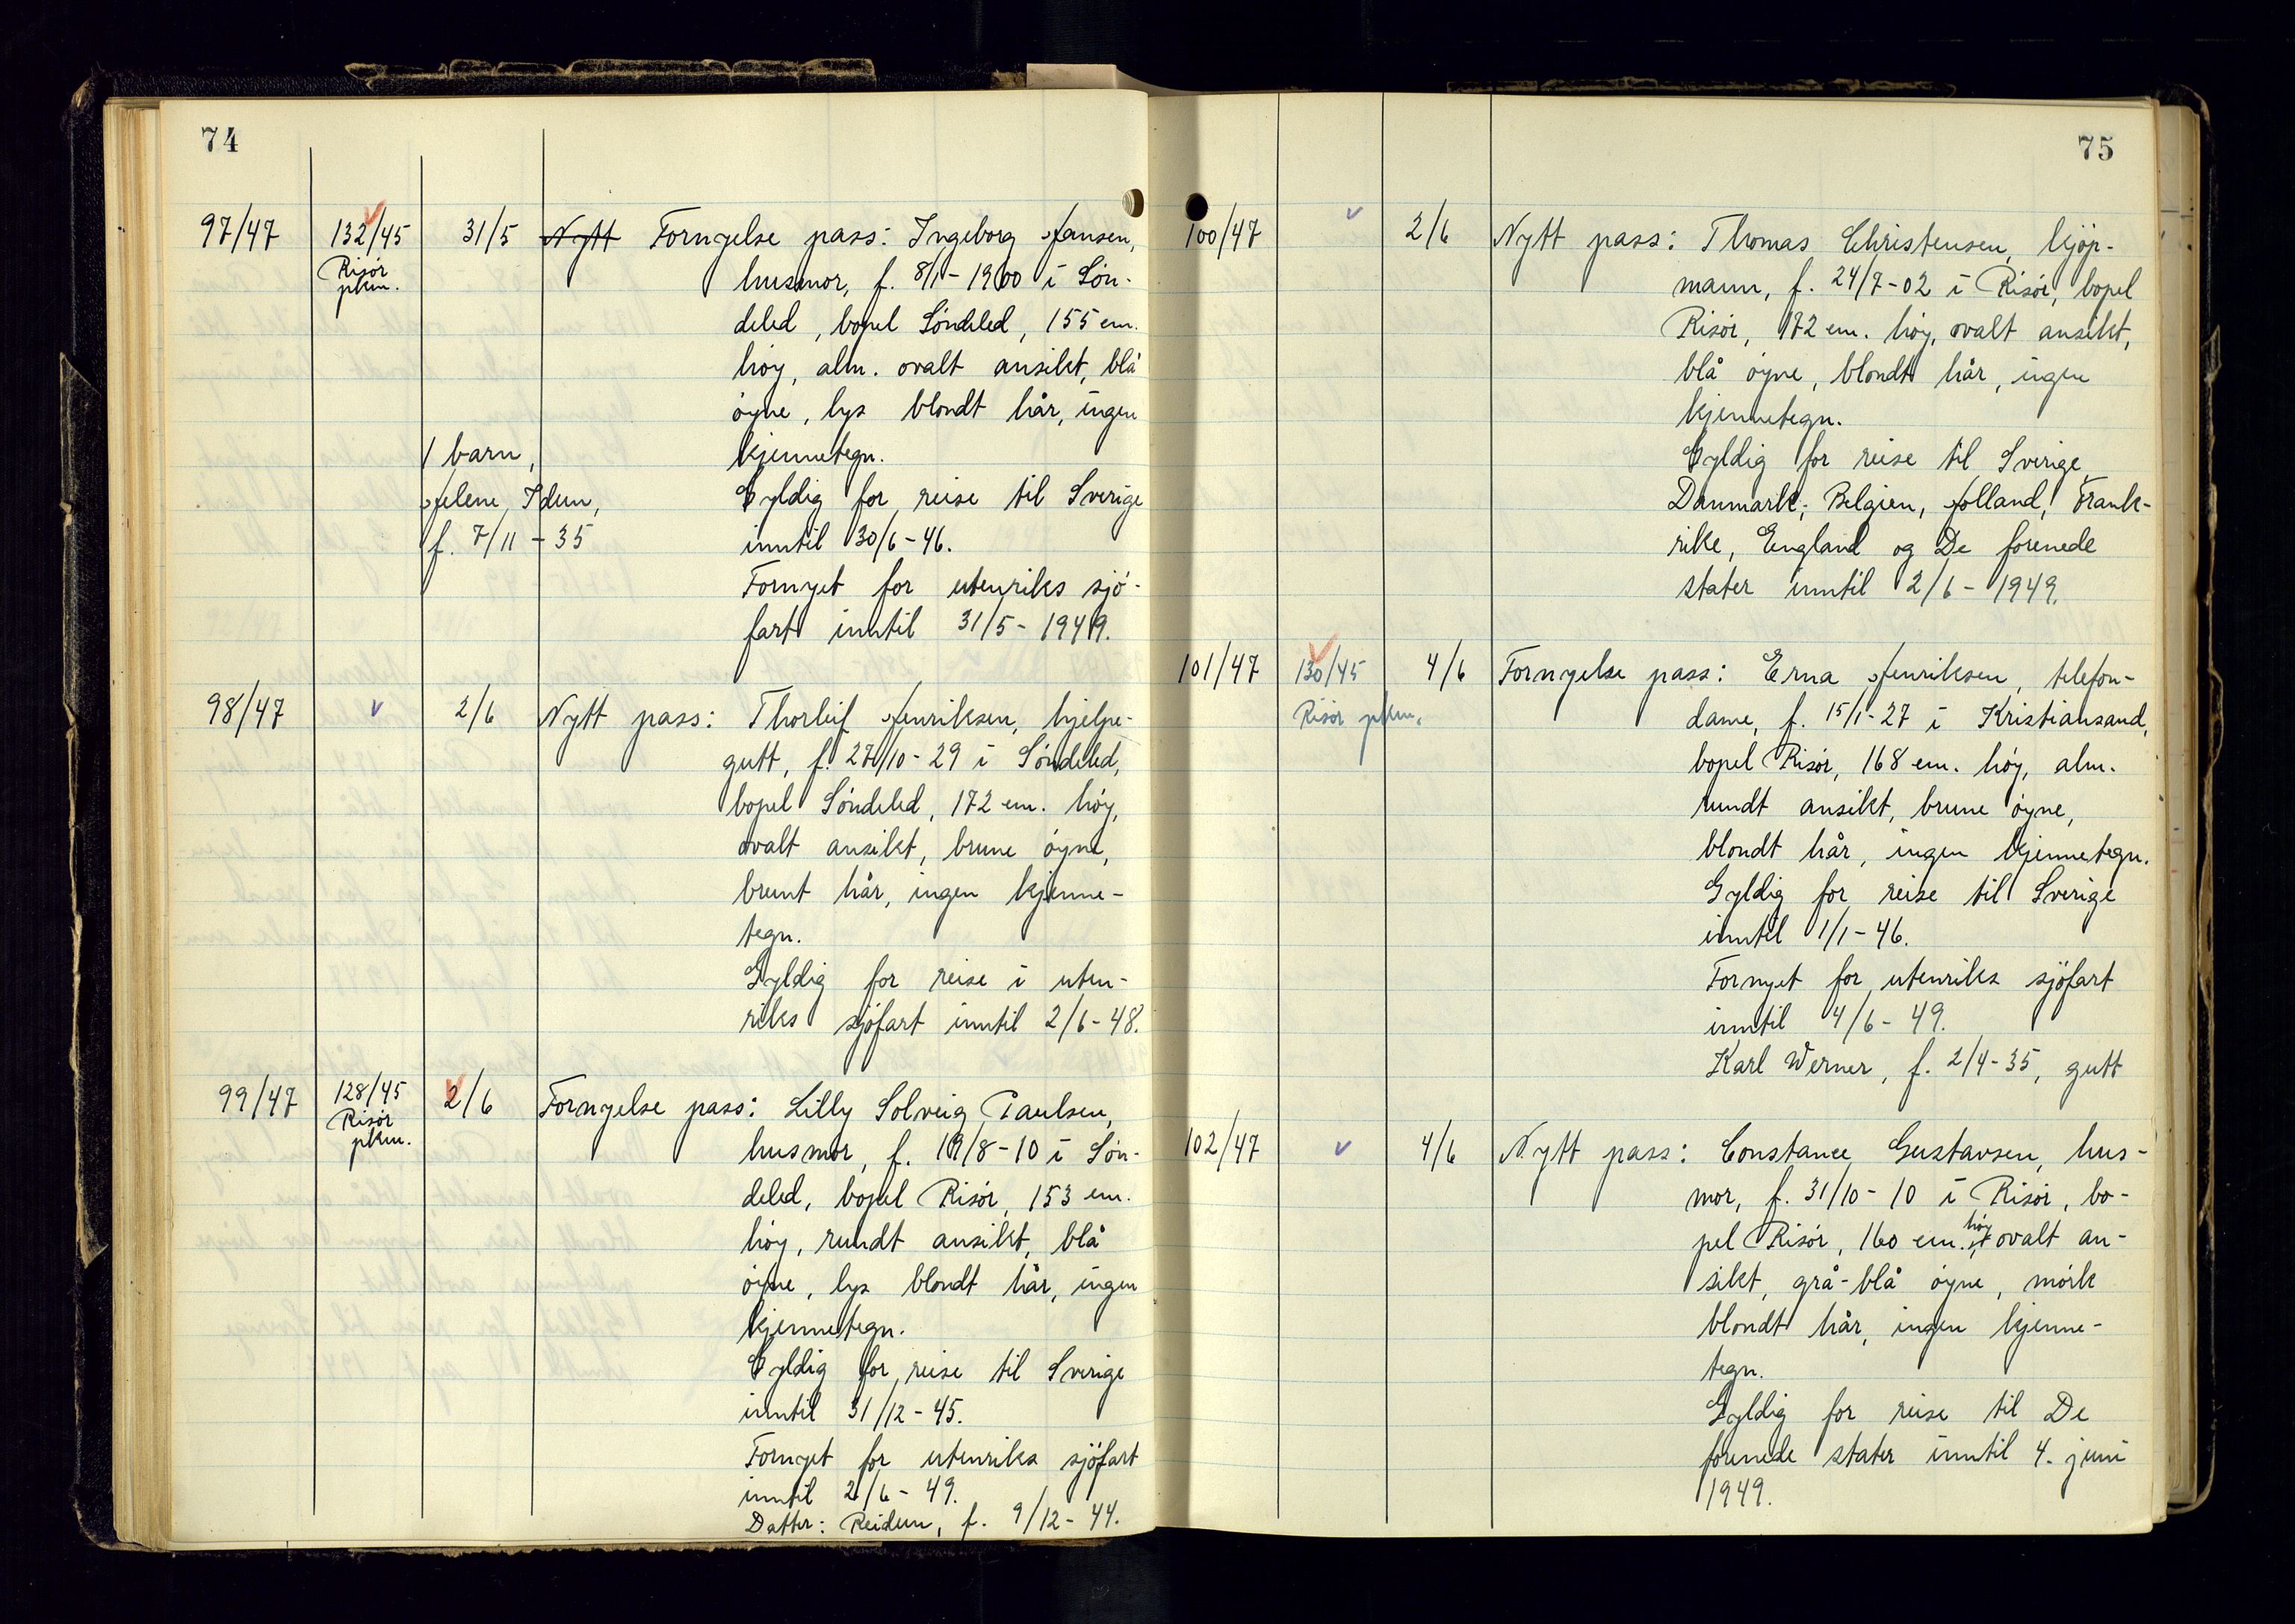 74
97/47 132/45 31/5 Nytt Fornyelse pass: Ingeborg Hansen,
Risör
pkm.
husmor, f. 8/1-1900 i Sön-
deled, bopel Söndeled, 155 cm.
höy, alm. ovalt ansikt, blå
öyne, lys blondt hår, ingen
kjennetegn.
1 barn,
Helene Idun,
f. 7/11-35
Gyldig for reise til Sverige
inntil 30/6-46.
Fornyet for utenriks sjö-
fart inntil 31/5-1949.
98/47 v 2/6 Nytt pass: Thorleif Henriksen, hjelpe-
gutt, f. 27/10-29 i Söndeled,
bopel Söndeled, 172 cm. höy,
ovalt ansikt, brune öyne,
brunt hår, ingen kjenne-
tegn.
Gyldig for reise i uten-
riks sjöfart inntil 2/6-48.
99/47 128/45 2/6 Fornyelse pass: Lilly Solveig Paulsen,
Risör
pkm.
husmor, f. 19/8-10 i Sön-
deled, bopel Risör, 153 cm.
höy, rundt ansikt, blå
öyne, lys blondt hår, ingen
kjennetegn.
Gyldig for reise til Sverige
inntil 31/12-45.
Fornyet for utenriks sjöfart
inntil 2/6-49.
Datter: Reidun, f. 9/12-44.
75
100/47 v 2/6 Nytt pass: Thomas Christensen, kjöp-
mann, f. 24/7-02 i Risör, bopel
Risör, 172 cm. höy, ovalt ansikt,
blå öyne, blondt hår, ingen
kjennetegn.
Gyldig for reise til Sverige,
Danmark, Belgien, Holland, Frank-
rike, England og De forenede
stater inntil 2/6-1949.
101/47 130/45 4/6 Fornyelse pass: Erna Henriksen, telefon-
Risör pkm.
dame, f. 15/1-27 i Kristiansand,
bopel Risör, 168 cm. höy, alm.
rundt ansikt, brune öyne,
blondt hår, ingen kjennetegn.
Gyldig for reise til Sverige
inntil 1/1-46.
Fornyet for utenriks sjöfart
inntil 4/6-49.
Karl Werner, f. 2/4-35, gutt
102/47 v 4/6 Nytt pass: Constance Gustavsen, hus-
mor, f. 31/10-10 i Risör, bo-
pel Risör, 160 cm. höy, ovalt an-
sikt, grå-blå öyne, mörk
blondt hår, ingen kjenne-
tegn.
Gyldig for reise til De
forenede stater inntil 4. juni
1949.